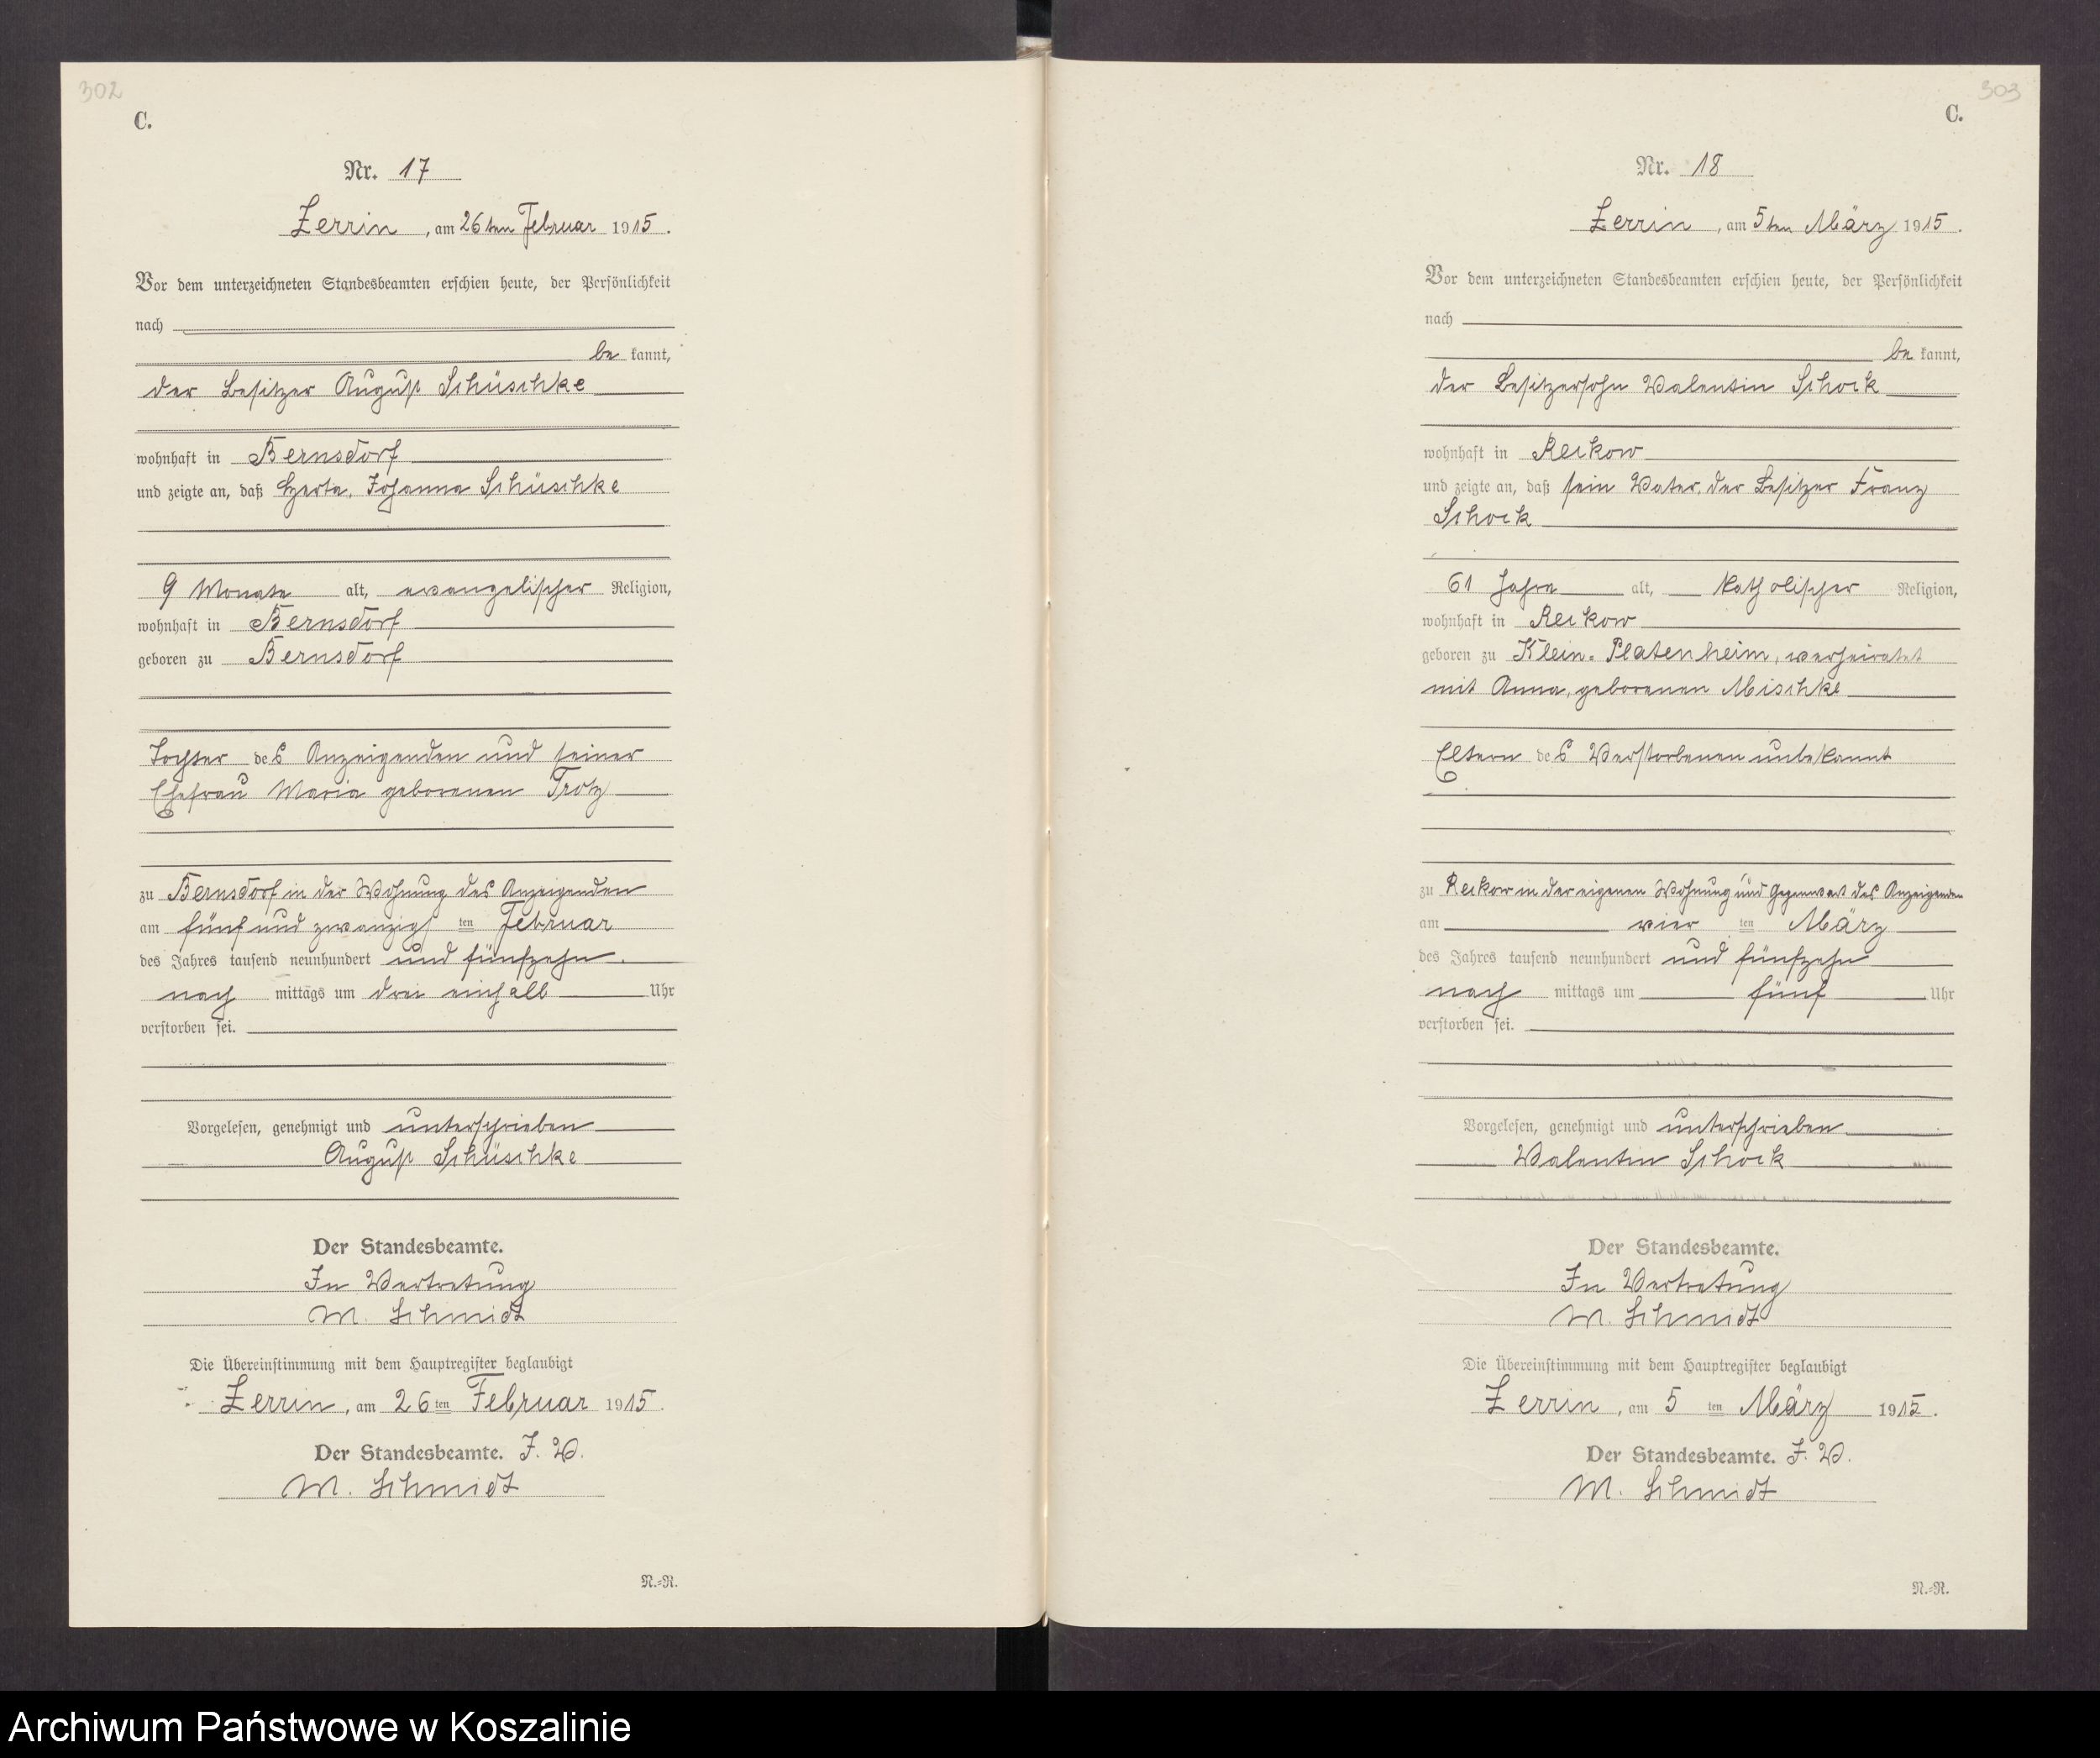 302
C.
Nr. 17
Zerrin, am 26ten Februar 1915.
Vor dem unterzeichneten Standesbeamten erschien heute, der Persönlichkeit
nach
be kannt,
der Besitzer August Schüschke
wohnhaft in Bernsdorf
und zeigte an, daß Herta, Johanna Schüschke
9 Monate alt, evangelischer Religion,
wohnhaft in Bernsdorf
geboren zu Bernsdorf
Tochter des Anzeigenden und seiner
Ehefrau Maria geborenen Trotz
zu Bernsdorf in der Wohnung des Anzeigenden
am fünf und zwanzigsten Februar
des Jahres tausend neunhundert und fünfzehn.
nach mittags um drei einhalb Uhr
verstorben sei.
Vorgelesen, genehmigt und unterschrieben
August Schüschke
Der Standesbeamte.
In Vertretung
M. Schmidt
Die Übereinstimmung mit dem Hauptregister beglaubigt
Zerrin, am 26ten Februar 1915.
Der Standesbeamte. J. V.
M. Schmidt
N.=R.
303
C.
Nr. 18
Zerrin, am 5ten März 1915.
Vor dem unterzeichneten Standesbeamten erschien heute, der Persönlichkeit
nach
be kannt,
der Besitzersohn Valentin Schock
wohnhaft in Reckow
und zeigte an, daß sein Vater, der Besitzer Franz
Schock
61 Jahre alt, katholischer Religion,
wohnhaft in Reckow
geboren zu Klein=Platenheim, verheiratet
mit Anna, geborenen Mischke
Eltern des Verstorbenen unbekannt
zu Reckow in der eigenen Wohnung und Gegenwart des Anzeigenden
am vier ten März
des Jahres tausend neunhundert und fünfzehn
nach mittags um fünf Uhr
verstorben sei.
Vorgelesen, genehmigt und unterschrieben
Valentin Schock
Der Standesbeamte.
In Vertretung
M. Schmidt
Die Übereinstimmung mit dem Hauptregister beglaubigt
Zerrin, am 5 ten März 1915.
Der Standesbeamte. J. V.
M. Schmidt
N.=R.
Archiwum Państwowe w Koszalinie